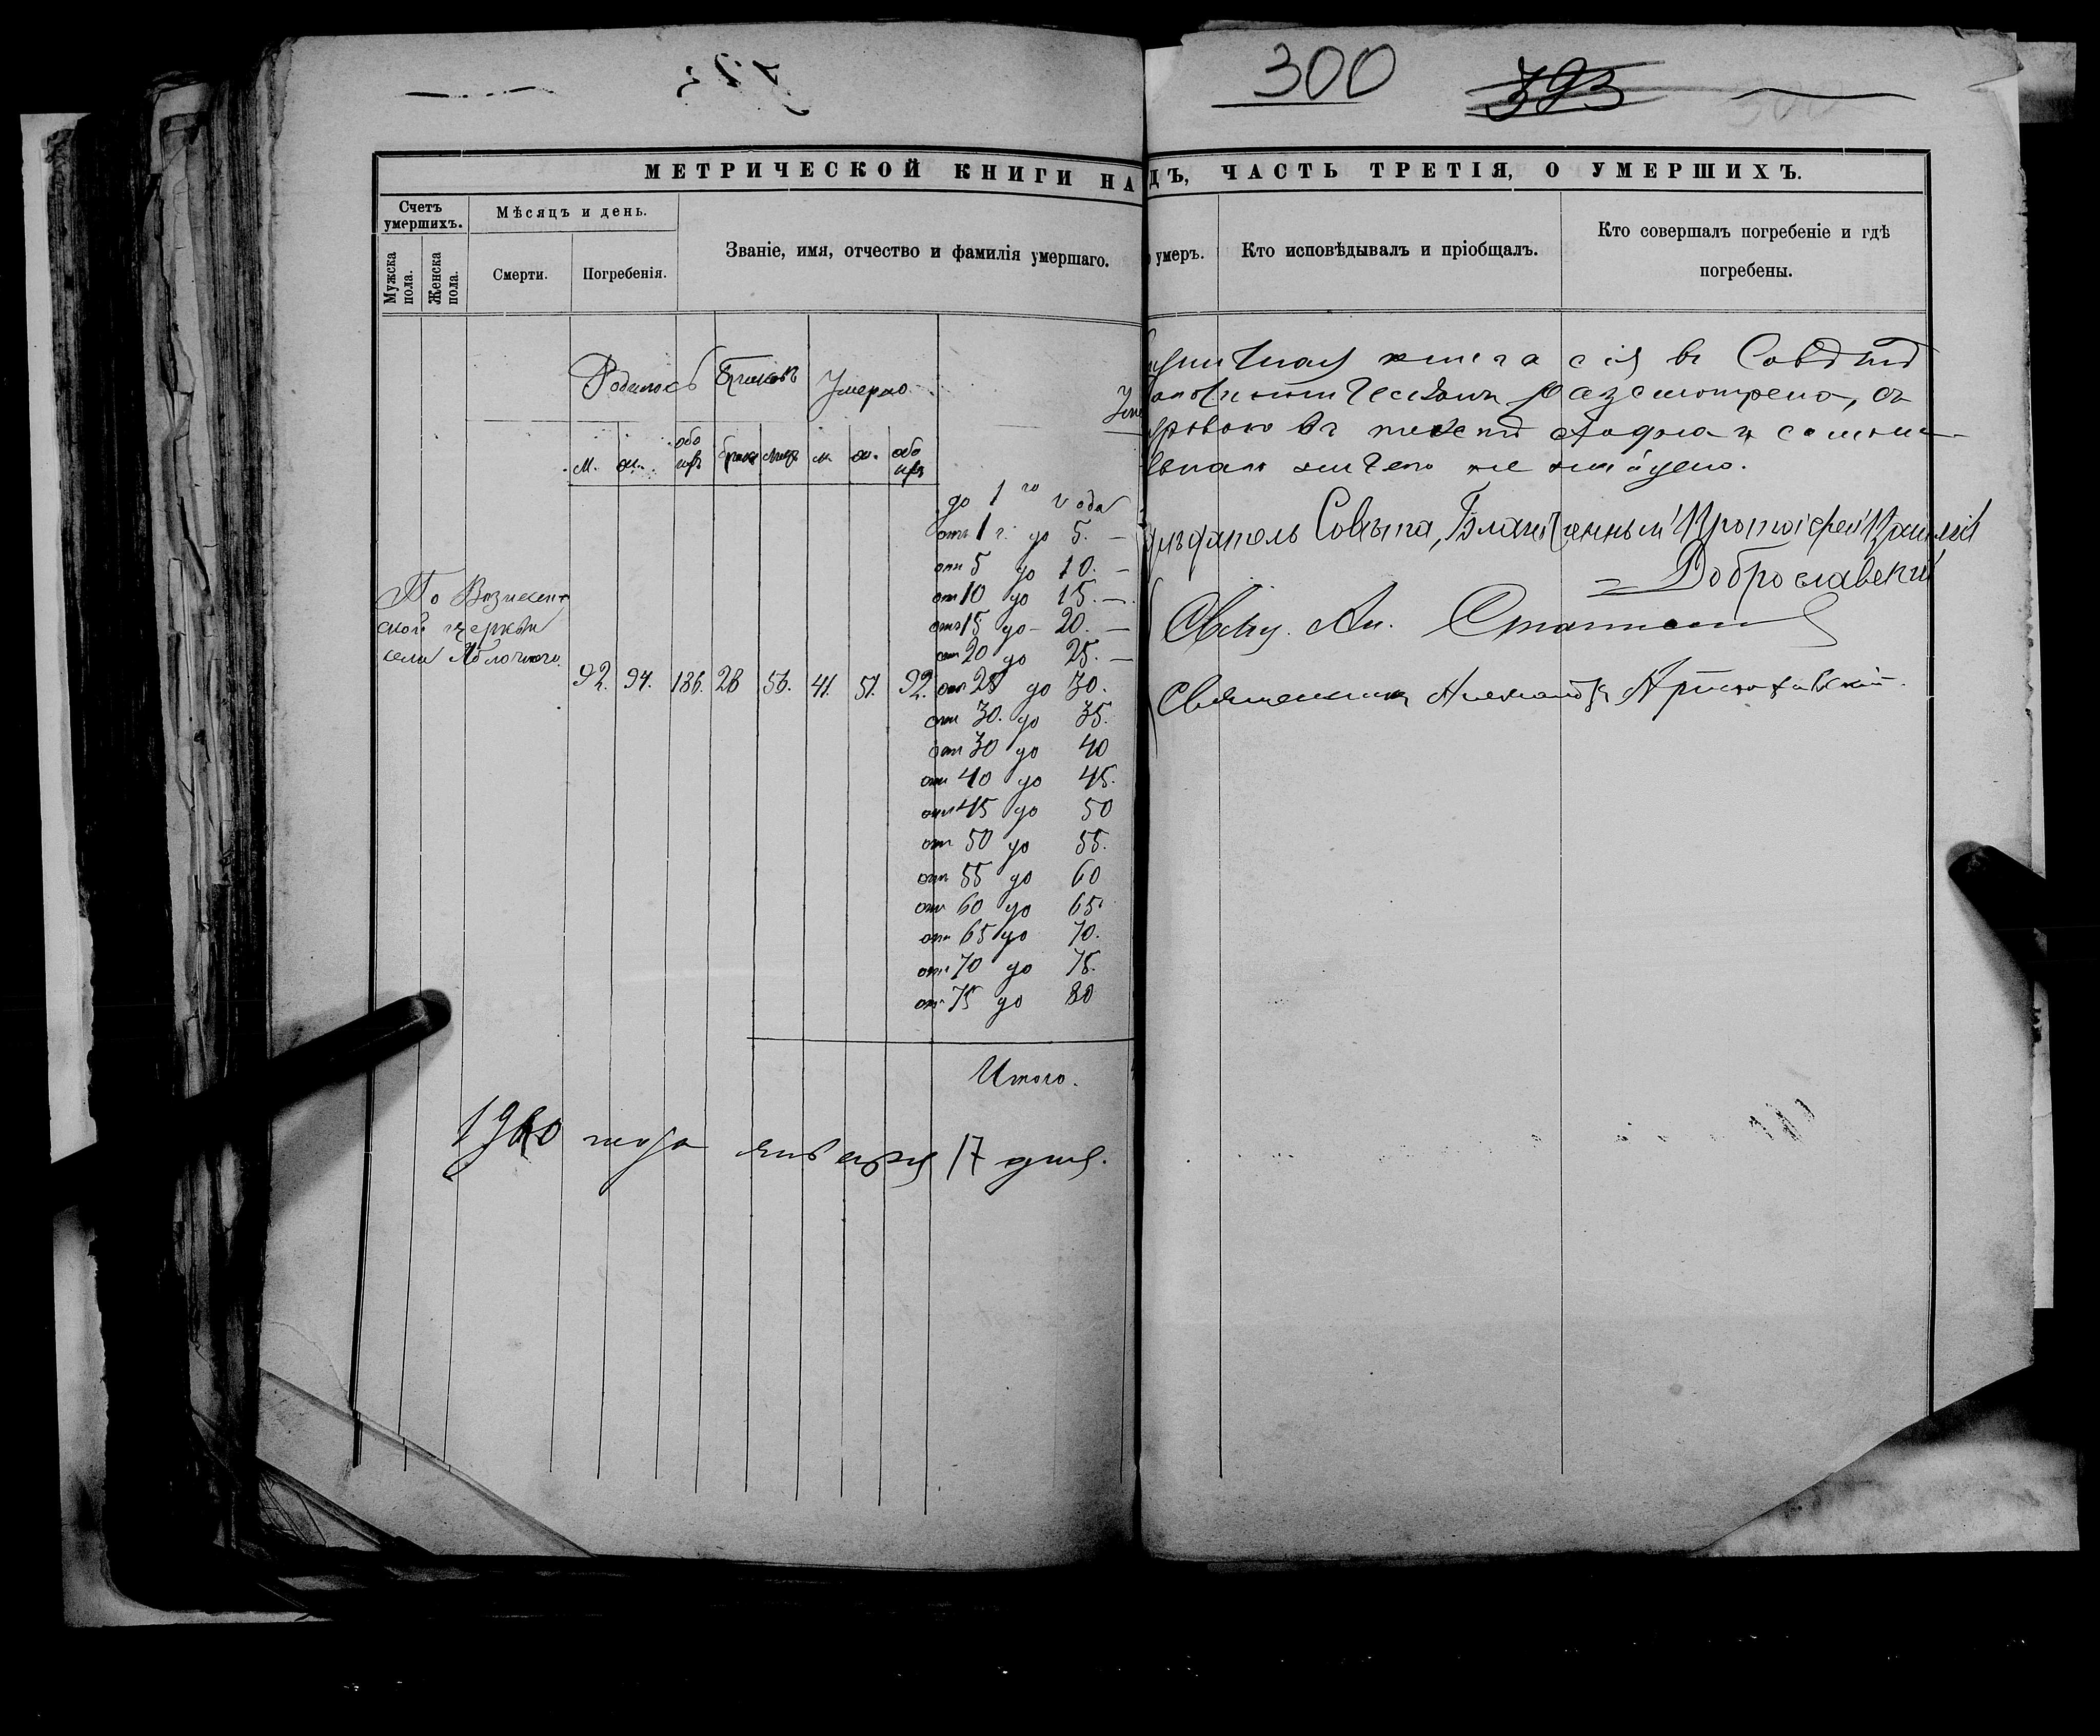 300 393
МЕТРИЧЕСКОЙ КНИГИ НА
Счетъ умершихъ.
Мѣсяцъ и день.
Мужска пола.
Женска пола.
Смерти.
Погребенія.
Званіе, имя, отчество и фамилія умершаго.
Родилось Браковъ Умерло
М. ж. обо его м. ж. обо его
до 1 го года
отъ 1 г. до 5. —
отъ 5 до 10. —
от 10 до 15. —
отъ 15 до 20. —
от 20 до 25. —
По Вознесен-
ской церкви
села Яблочного.
92. 94. 186. 28 56. 41. 51. 92. от 25 до 30.
от 30. до 35.
от 30 до 40
от 40 до 45.
от 45 до 50
от 50 до 55.
от 55 до 60
от 60 до 65
от 65 до 70.
от 70 до 75.
от 75 до 80
Итого.
года января 17 дня.
ДЪ, ЧАСТЬ ТРЕТІЯ, О УМЕРШИХЪ.
умеръ.
Кто исповѣдывалъ и пріобщалъ.
Кто совершалъ погребеніе и гдѣ
погребены.
книга сія въ Совѣтѣ
разсмотрена, съ
въ текстѣ и сомни-
ничего не найдено.
Совѣта, Благочинный Протоіерей
Доброславскій
Свящ. Ал.
Священникъ Александръ